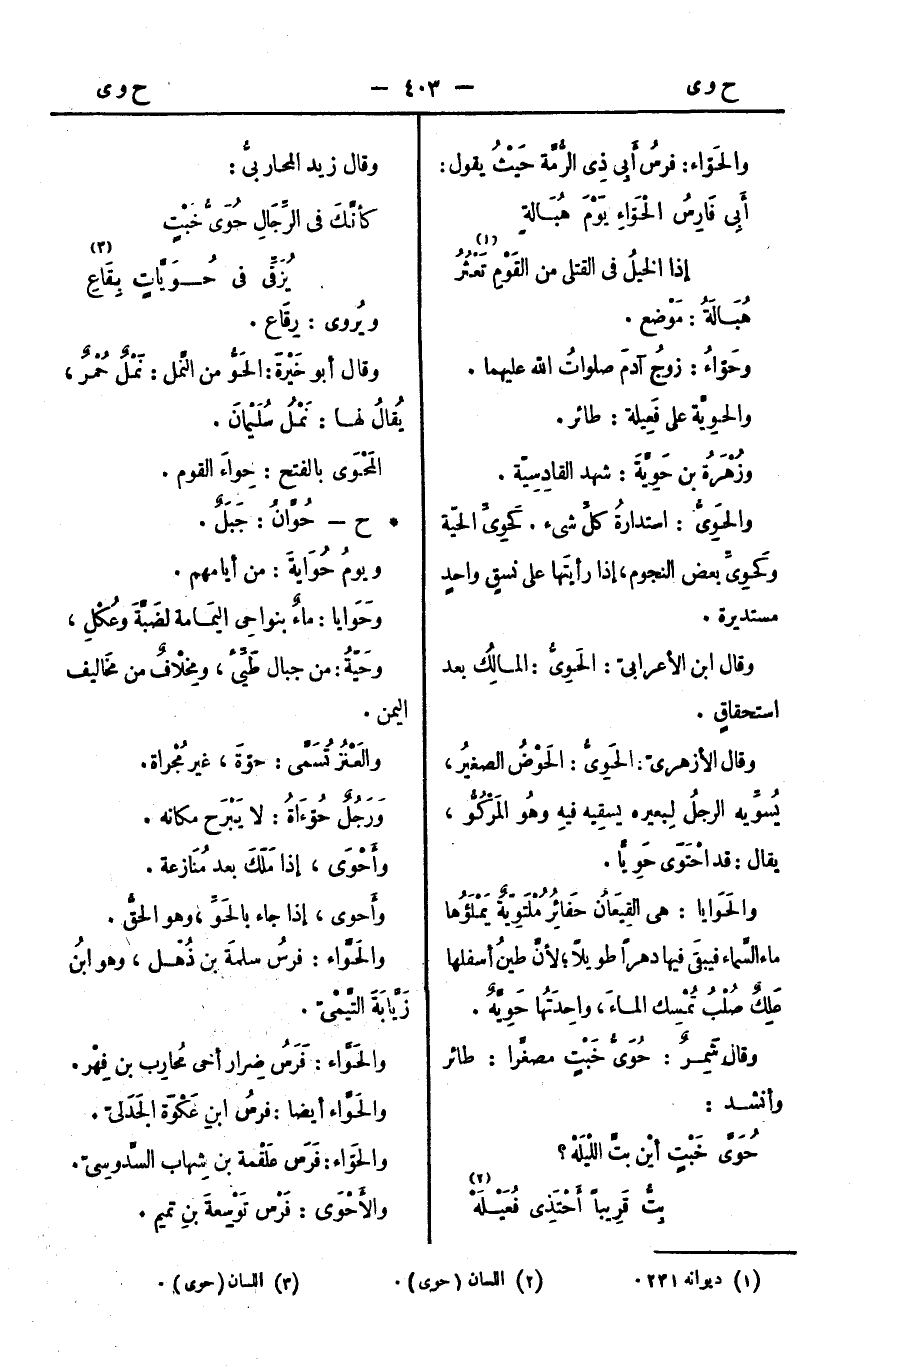 ح وى
— ٤٠٣ —
ح وى
والحَوّاء: فرسُ أَبِى ذِى الرُّمَّة حَيْثُ يقول:
أَبِى فَارِسُ الْحَوَاءِ يَوْمَ هُبَالةٍ
إذا الخيلُ فى القتلى من القَوْمِ تَعْثُرُ (١)
هُبَالَةُ: مَوْضع.
وحَوَّاءُ: زوجُ آدمَ صلواتُ الله عليهما.
والحوِيَّة على فَعِيلة: طائر.
وزُهْرَةُ بن حَوِيَّةَ: شهد القادِسِيّة.
والحَوِىُّ: استدارةُ كلِّ شىء. كَحَوِىِّ الحَيّة
وكَحوِىِّ بعض النجوم، إذا رأيتَها على نسقٍ واحدٍ
مستديرة.
وقال ابن الأعرابىّ: الحَوِىُّ: المالِكُ بعد
استحقاقٍ.
وقال الأزهرىّ: الحوِىُّ: الحَوْضُ الصغيرُ،
يُسوِّيه الرجلُ لِبعيره يسقِيه فيهِ وهُو المَرْكُوُّ،
يقال: قد احْتَوَى حَوِيًّا.
والحَوايا: هى القِيعَانُ حفائِرُ مُلْتَوِيَةٌ يَمْلَؤُها
ماء السَّماء فيبقى فيها دهراً طويلاً؛ لأنَّ طينَ أسفلها
عَلِكٌ صُلْبٌ تُمْسِك الماءَ، واحِدَتُها حَوِيَّةٌ.
وقال شَمِرٌ: حُوَىُّ خَبْتٍ مصغَّرا: طائر
وأنشد:
حُوَىَّ خَبْتٍ أيْن بتَّ اللَيْلَهْ؟
بِتُّ قَرِيباً أَحْتَذِى نُعَيْلَهْ (٢)
وقال زيد المحاربىُّ:
كأنَّكَ فى الرِّجَالِ حُوَىُّ خَبْتٍ
يُزَقِّى فى حُوَيَّاتٍ بِقَاعِ (٣)
ويُروى: رِقَاعِ.
وقال أبو خَيْرَةَ: الحَوُّ من النَّمل: نَمْلٌ حُمْرٌ،
يُقالُ لها: نَمْلُ سُلَيْمانَ.
المَحْوَى بالفتح: حِواءَ القوم.
* ح — حُوَّانُ: جَبَلٌ.
ويومُ حُوَايةَ: من أيامهم.
وحَوَايا: ماءٌ بنواحِى اليمَامة لضَبَّةَ وعُكْلٍ،
وحَيَّةُ: من جبال طَيِّىءٍ، ومِخْلافٌ من مخَاليف
اليمن.
والعَنْزُ تُسَمَّى: حوّةَ، غير مُجْراة.
وَرَجُلٌ حُوَءَاةٌ: لا يَبْرَح مكانه.
وأَحْوَى، إذا مَلَكَ بعد مُنَازعة.
وأَحوى، إذا جاء بالحَوِّ، وهو الحقُّ.
والحَوَّاء: فرسُ سلمةَ بن ذُهْل، وهو ابنُ
زَيَّابَةَ التَّيْمىّ.
والحَوَّاء: فَرَسُ ضِرار أخى مُحارِب بن فِهْر.
والحَوَّاء أيضا: فرسُ ابن عَكْوَة الجَدَلىّ.
والحَوَاء: فَرَس علقْمة بن شِهاب السَّدوسىّ.
والأَحْوَى: فَرْس تَوْسِعةَ بنِ تميم.
(١) ديوانه ٢٣١.
(٢) اللسان (حوى).
(٣) اللسان (حوى).